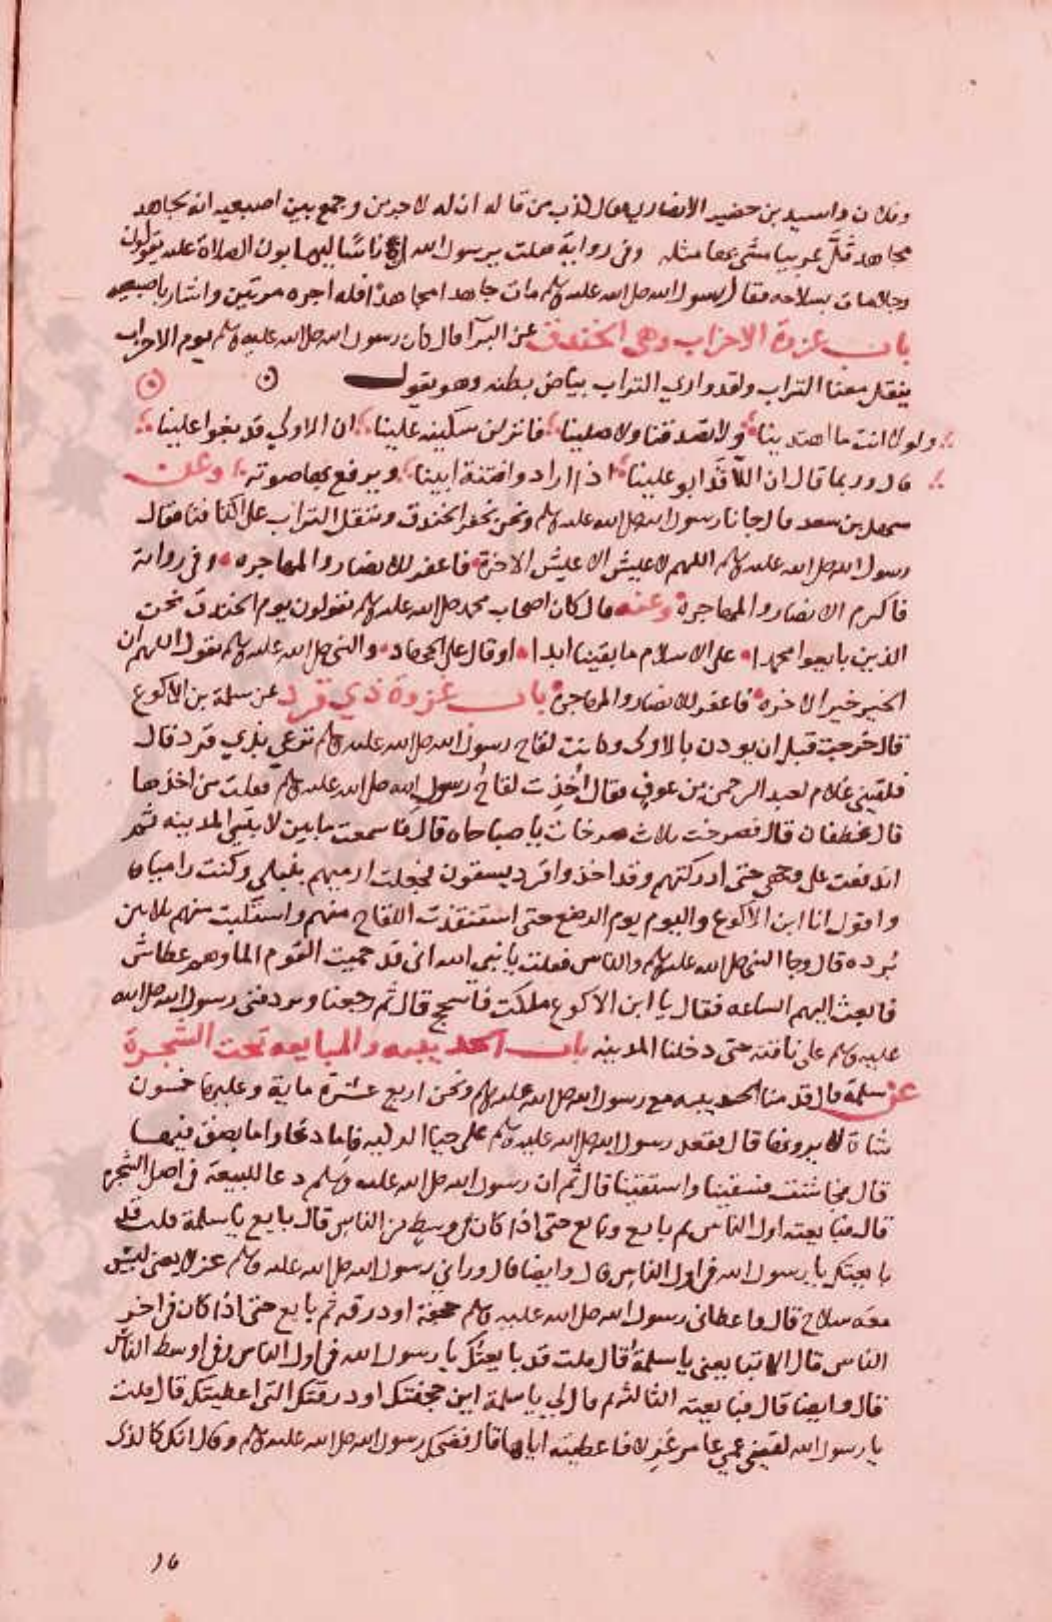 وفلان واسيد بن حضير الانصاري فقال كذب من قاله ان له لاجرين وجمع بين اصبعيه انه لجاهد
مجاهد قلّ عربيا مشى بها مثله وفي رواية قلت يرسول الله ان ناسًا ليهابون الصلاة عليه يقولون
رجل مات بسلاحه فقال رسول الله صلى الله عليه وسلم مات جاهدا مجاهدا فله اجره مرتين واشار باصبعيه
باب غزوة الاحزاب وهي الخندق عن البرآ قال كان رسول الله صلى الله عليه وسلم يوم الاحزاب
ينقل معنا التراب ولقد واري التراب بياض بطنه وهو يقول
ولولا انت ما اهتدينا ولا تصدقنا ولا صلينا فانزلن سكينه علينا ان الاولي قد بغوا علينا
قال وربما قال ان الملأ قد ابو علينا اذا ارادوا فتنة ابينا ويرفع بها صوته وعن
سهل بن سعد قال جانا رسول الله صلى الله عليه وسلم ونحن نحفر الخندق وننقل التراب على اكتافنا فقال
رسول الله صلى الله عليه وسلم اللهم لا عيش الا عيش الاخرة فاغفر للانصار والمهاجره وفي رواية
فاكرم الانصار والمهاجرة وعنه قال كان اصحاب محمد صلى الله عليه وسلم يقولون يوم الخندق نحن
الذين بايعوا محمدا على الاسلام ما بقينا ابدا او قال على الجهاد والنبي صلى الله عليه وسلم يقول اللهم ان
الخير خير الاخره فاغفر للانصار والمهاجرة باب غزوة ذي قرد عن سلمة بن الاكوع
قال خرجت قبل ان يوذن بالاولى وكانت لقاح رسول الله صلى الله عليه وسلم ترعي بذي قرد قال
فلقيني غلام لعبد الرحمن بن عوف فقال أُخِذت لقاحُ رسول الله صلى الله عليه وسلم فقلت من اخذها
قال غطفان قال فصرخت ثلاث صرخات يا صباحاه قال فاسمعت ما بين لابتي المدينه ثم
اندفعت على وجهي حتى ادركتهم وقد اخذوا قرد يسقون فجعلت ارميهم بنبلي وكنت راميا
واقول انا ابن الاكوع واليوم يوم الرضع حتى استنقذت اللقاح منهم واستلبت منهم ثلاثين
بُرده قال وجا النبي صلى الله عليه وسلم والناس فقلت يا نبي الله اني قد حميت القوم الما وهم عطاش
فابعث اليهم الساعه فقال يا ابن الاكوع ملكت فاسجح قال ثم رجعنا ويردفني رسول الله صلى الله
عليه وسلم على ناقته حتى دخلنا المدينه باب الحديبيه والمبايعه تحت الشجرة
عن سلمة قال قدمنا الحديبيه مع رسول الله صلى الله عليه وسلم ونحن اربع عشرة ماية وعليها خمسون
شاة لا يرويها قال فقعد رسول الله صلى الله عليه وسلم على جبا الركيه فاما دعا واما بصق فيها
قال فجاشت فسقينا واستقينا قال ثم ان رسول الله صلى الله عليه وسلم دعا للبيعة في اصل الشجره
قال فبايعته اول الناس ثم بايع وبايع حتى اذا كان في وسط من الناس قال بايع يا سلمة قلت قد
بايعتك يا رسول الله في اول الناس قال وايضا قال وراني رسول الله صلى الله عليه وسلم عزلا يعني ليس
معه سلاح قال فاعطاني رسول الله صلى الله عليه وسلم حجفة او درقه ثم بايع حتى اذا كان في اخر
الناس قال الا تبايعني يا سلمة قال قلت قد بايعتُك يا رسول الله في اول الناس وفي اوسط الناس
قال وايضا قال فبايعته الثالثه ثم قال لي يا سلمة اين حجفتك او درقتك التي اعطيتك قال قلت
يا رسول الله لقيني عمي عامر عَزِلا فاعطيته اياها قال فضحك رسول الله صلى الله عليه وسلم وقال انك كالذي
١٦